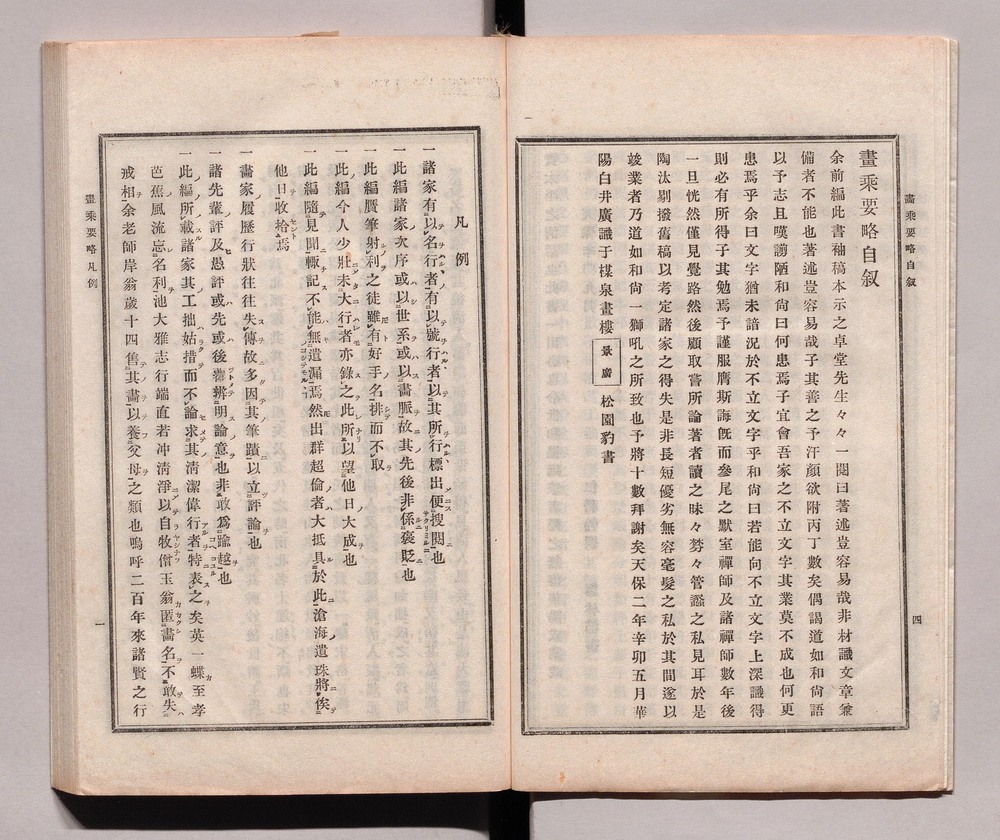 畫乘要略自叙
四
畫乘要略自叙
余前編此書袖稿本示之卓堂先生々々一閲曰著述豈容易哉非材識文章兼
備者不能也著述豈容易哉子其善之予汗顏欲附丙丁數矣偶謁道如和尙語
以予志且嘆謭陋和尙曰何患焉子宜會吾家之不立文字其業莫不成也何更
患焉乎余曰文字猶未諳況於不立文字乎和尙曰若能向不立文字上深識得
則必有所得子其勉焉予謹服膺斯誨旣而參尾之默室禪師及諸禪師數年後
一旦恍然僅見覺路然後顧取嘗所論著者讀之昧々棼々管蠡之私見耳於是
陶汰剔撥舊稿以考定諸家之得失是非長短優劣無容毫髮之私於其間遂以
竣業者乃道如和尙一獅吼之所致也予將十數拜謝矣天保二年辛卯五月華
陽白井廣識于楳泉畫樓 景廣 松園豹書
凡例
一諸家有以名行者有以號行者以其所行標出便搜閲也
一此編諸家次序或以世系或以畫脈故其先後非係褒貶也
一此編贋筆射利之徒雖有好手名排而不取
一此編今人少壯未大行者亦錄之此所以望他日大成也
一此編隨見聞輙記不能無遺漏焉然出群超倫者大抵具於此滄海遺珠將俟
他日收拾焉
一畵家履歷行狀往往失傳故多因其筆蹟以立評論也
一諸先輩評及愚評或先或後務辨明論意也非敢爲踰越也
一此編所載諸家其工拙姑措而不論求其淸潔偉行者特表之矣英一蝶至孝
芭蕉風流忘名利池大雅志行端直若冲淸淨以自牧僧玉翁匿畵名不敢失
戒相余老師岸翁歲十四售其畵以養父母之類也嗚呼二百年來諸賢之行
畫乘要略凡例
一